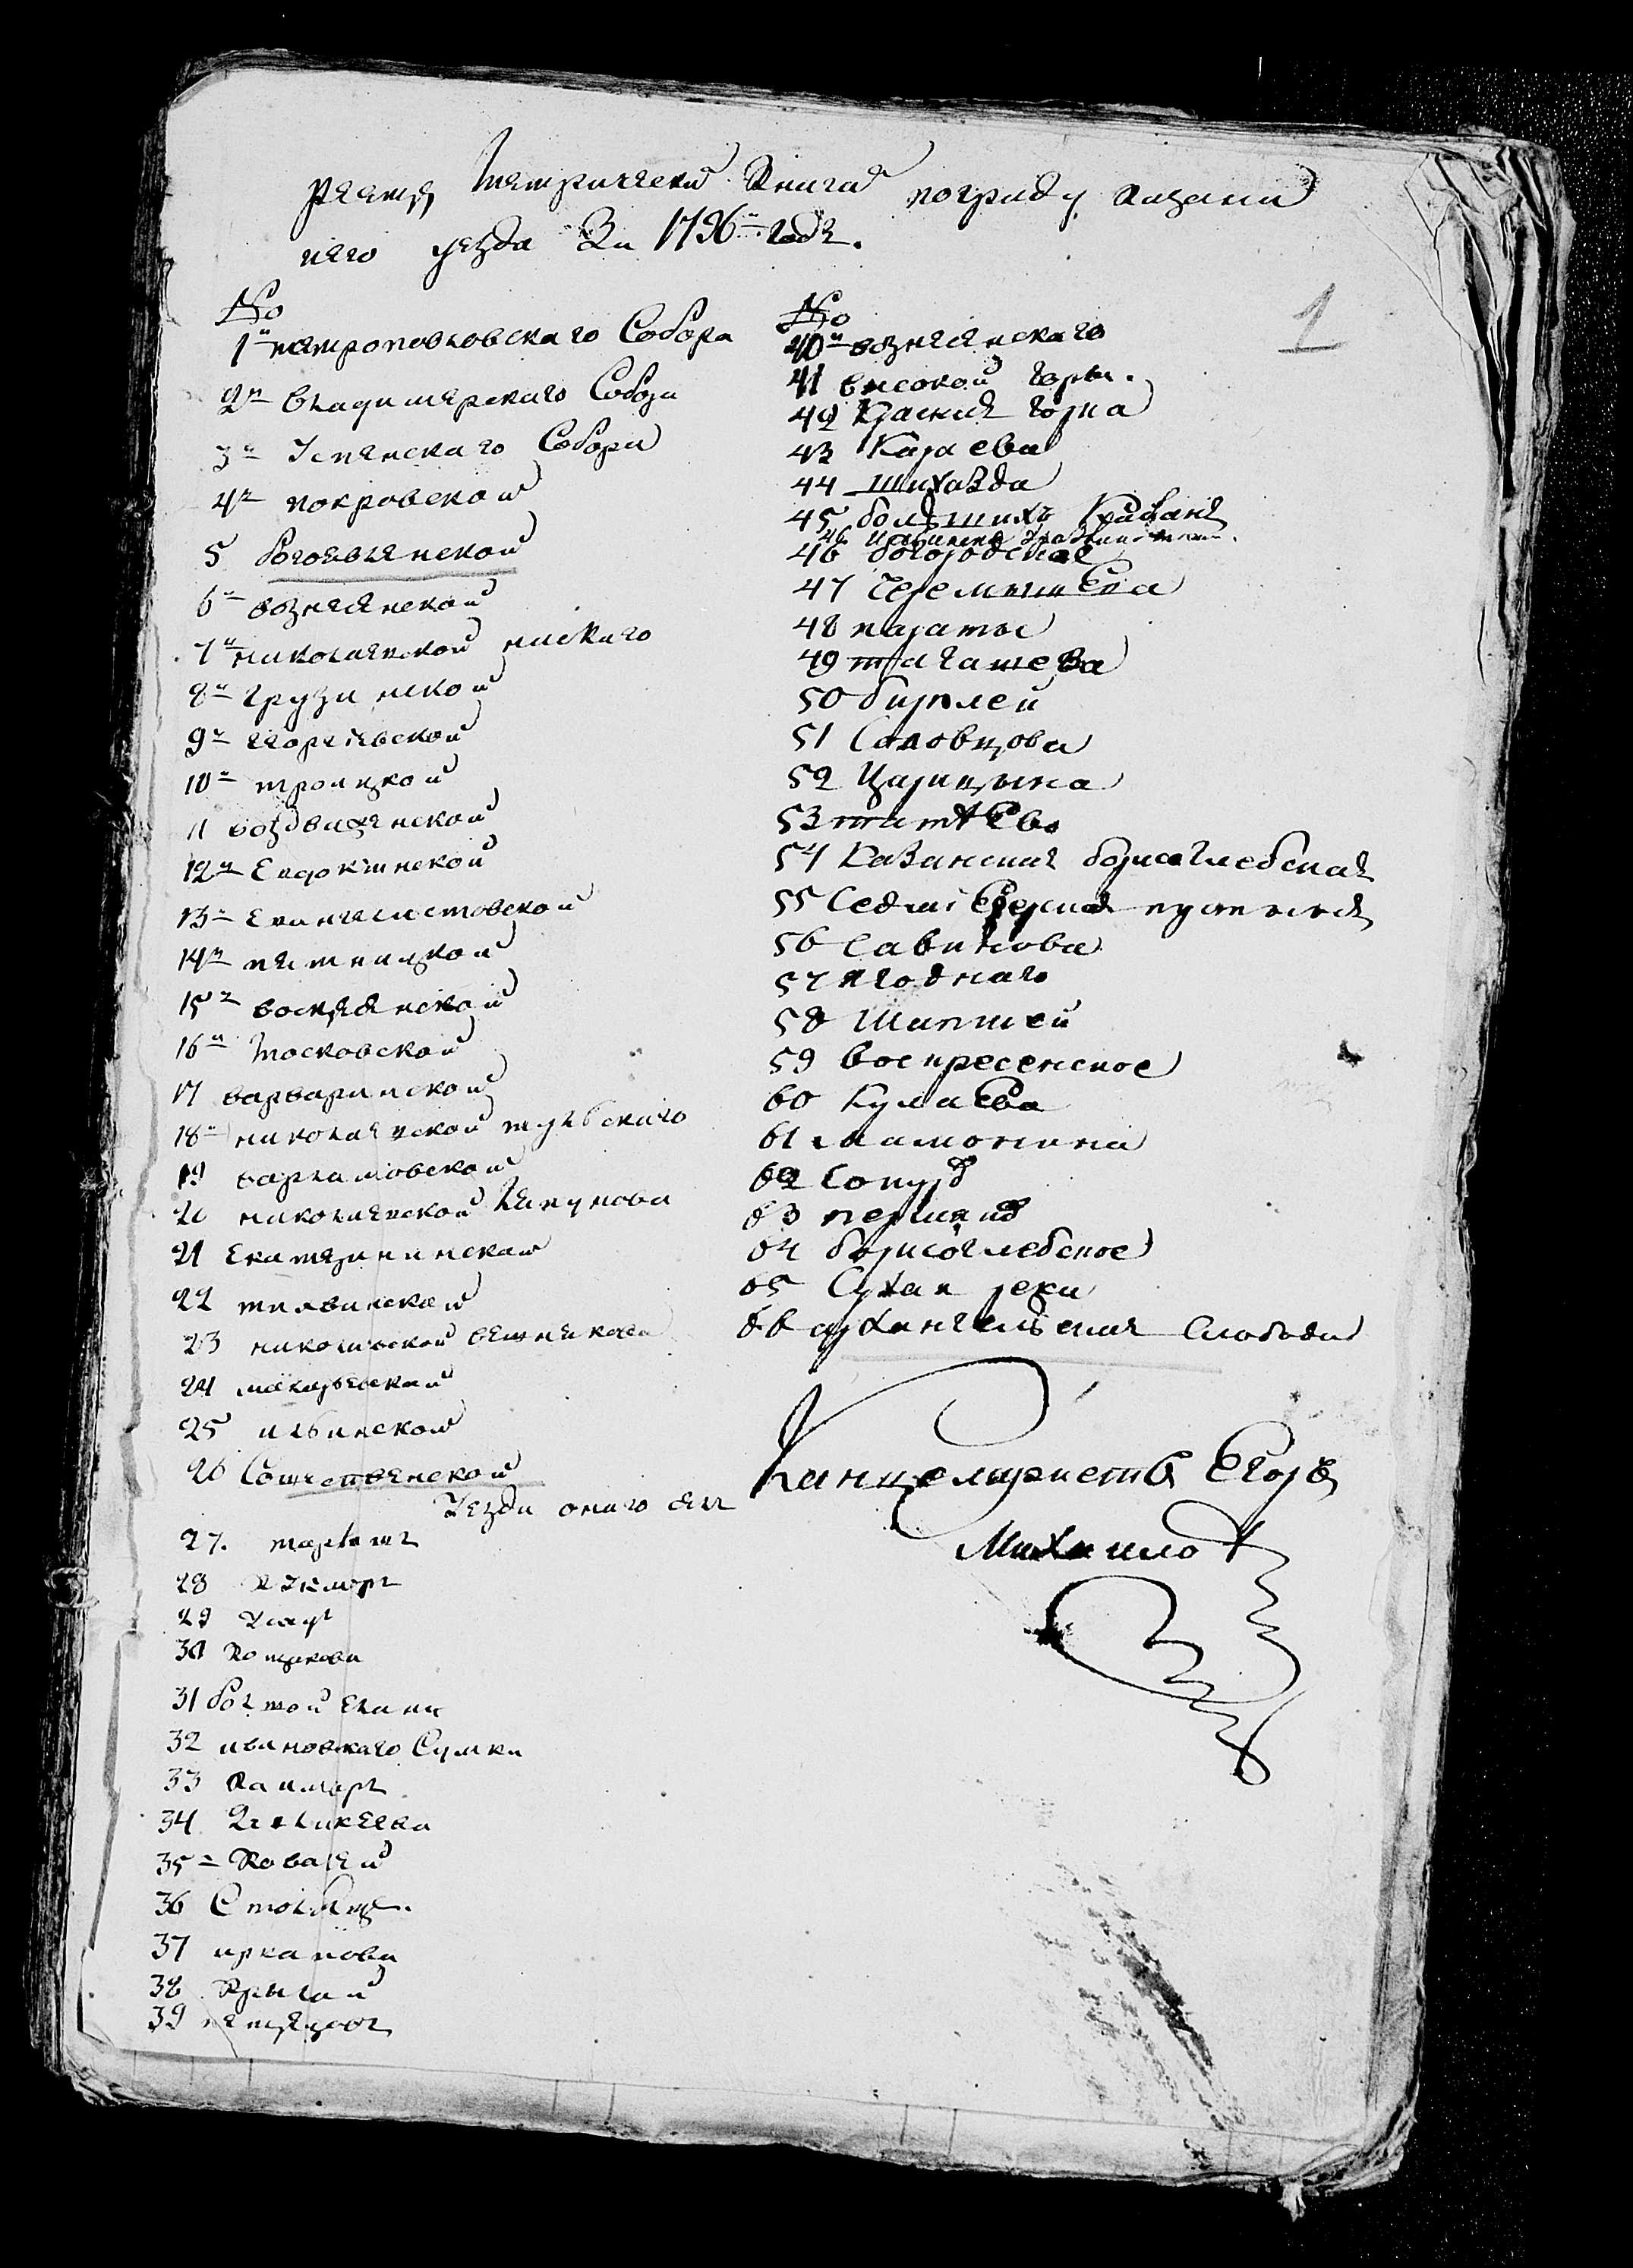 Реэстръ Метрической Книги по граду Казани
и его уезда За 1796 годъ.
№
1 петропавловскаго Собора
2 владимерскаго Собора
3 Успенскаго Собора
4 покровской
5 богоявленской
6 вознесенской
7 николаевской нискаго
8 грузинской
9 георгиевской
10 троицкой
11 воздвиженской
12 Евдокинской
13 Евангелистовской
14 пятницкой
15 воскресенской
16 Московской
17 варваринской
18 николаевской тульскаго
19 варламовской
20 николаевской Ляпунова
21 Екатерининской
22 тихвинской
23 никольской вешнякова
24 макарьевской
25 ильинской
26 Сошественской
Уезда онаго сел
27. тарлаши
28
29
30 Кощакова
31
32 ивановскаго Сумки
33 Каимаръ
34
35 Ковалей
36 Столбищ.
37
38 Крылай
39
№
40 вознесенскаго
41 высокой горы.
42 Красная горка
43 Караева
44 шихазда
45 большихъ Кабанъ
46 богородское
47 Черемышева
48 параты
49 тагашева
50 бирлей
51 Саловцова
52 Царицына
53
54 Казанская борисоглебская
55 Седмиезерная пустыня
56 Савинова
57 Ягоднаго
58 Шапшей
59 воскресенское
60 Кулаева
61 мамонина
62
63
64 борисоглебское
65 Сухая река
66 архангельская слобода
Канцеляристъ Егоръ
Михаилов
1